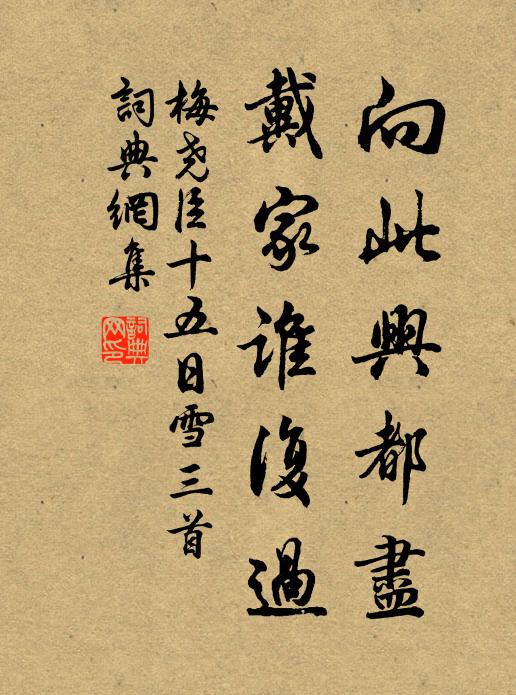 向此興都盡
戴家誰復過
梅尧臣十五日雪三首
詞典網集
詞典网印